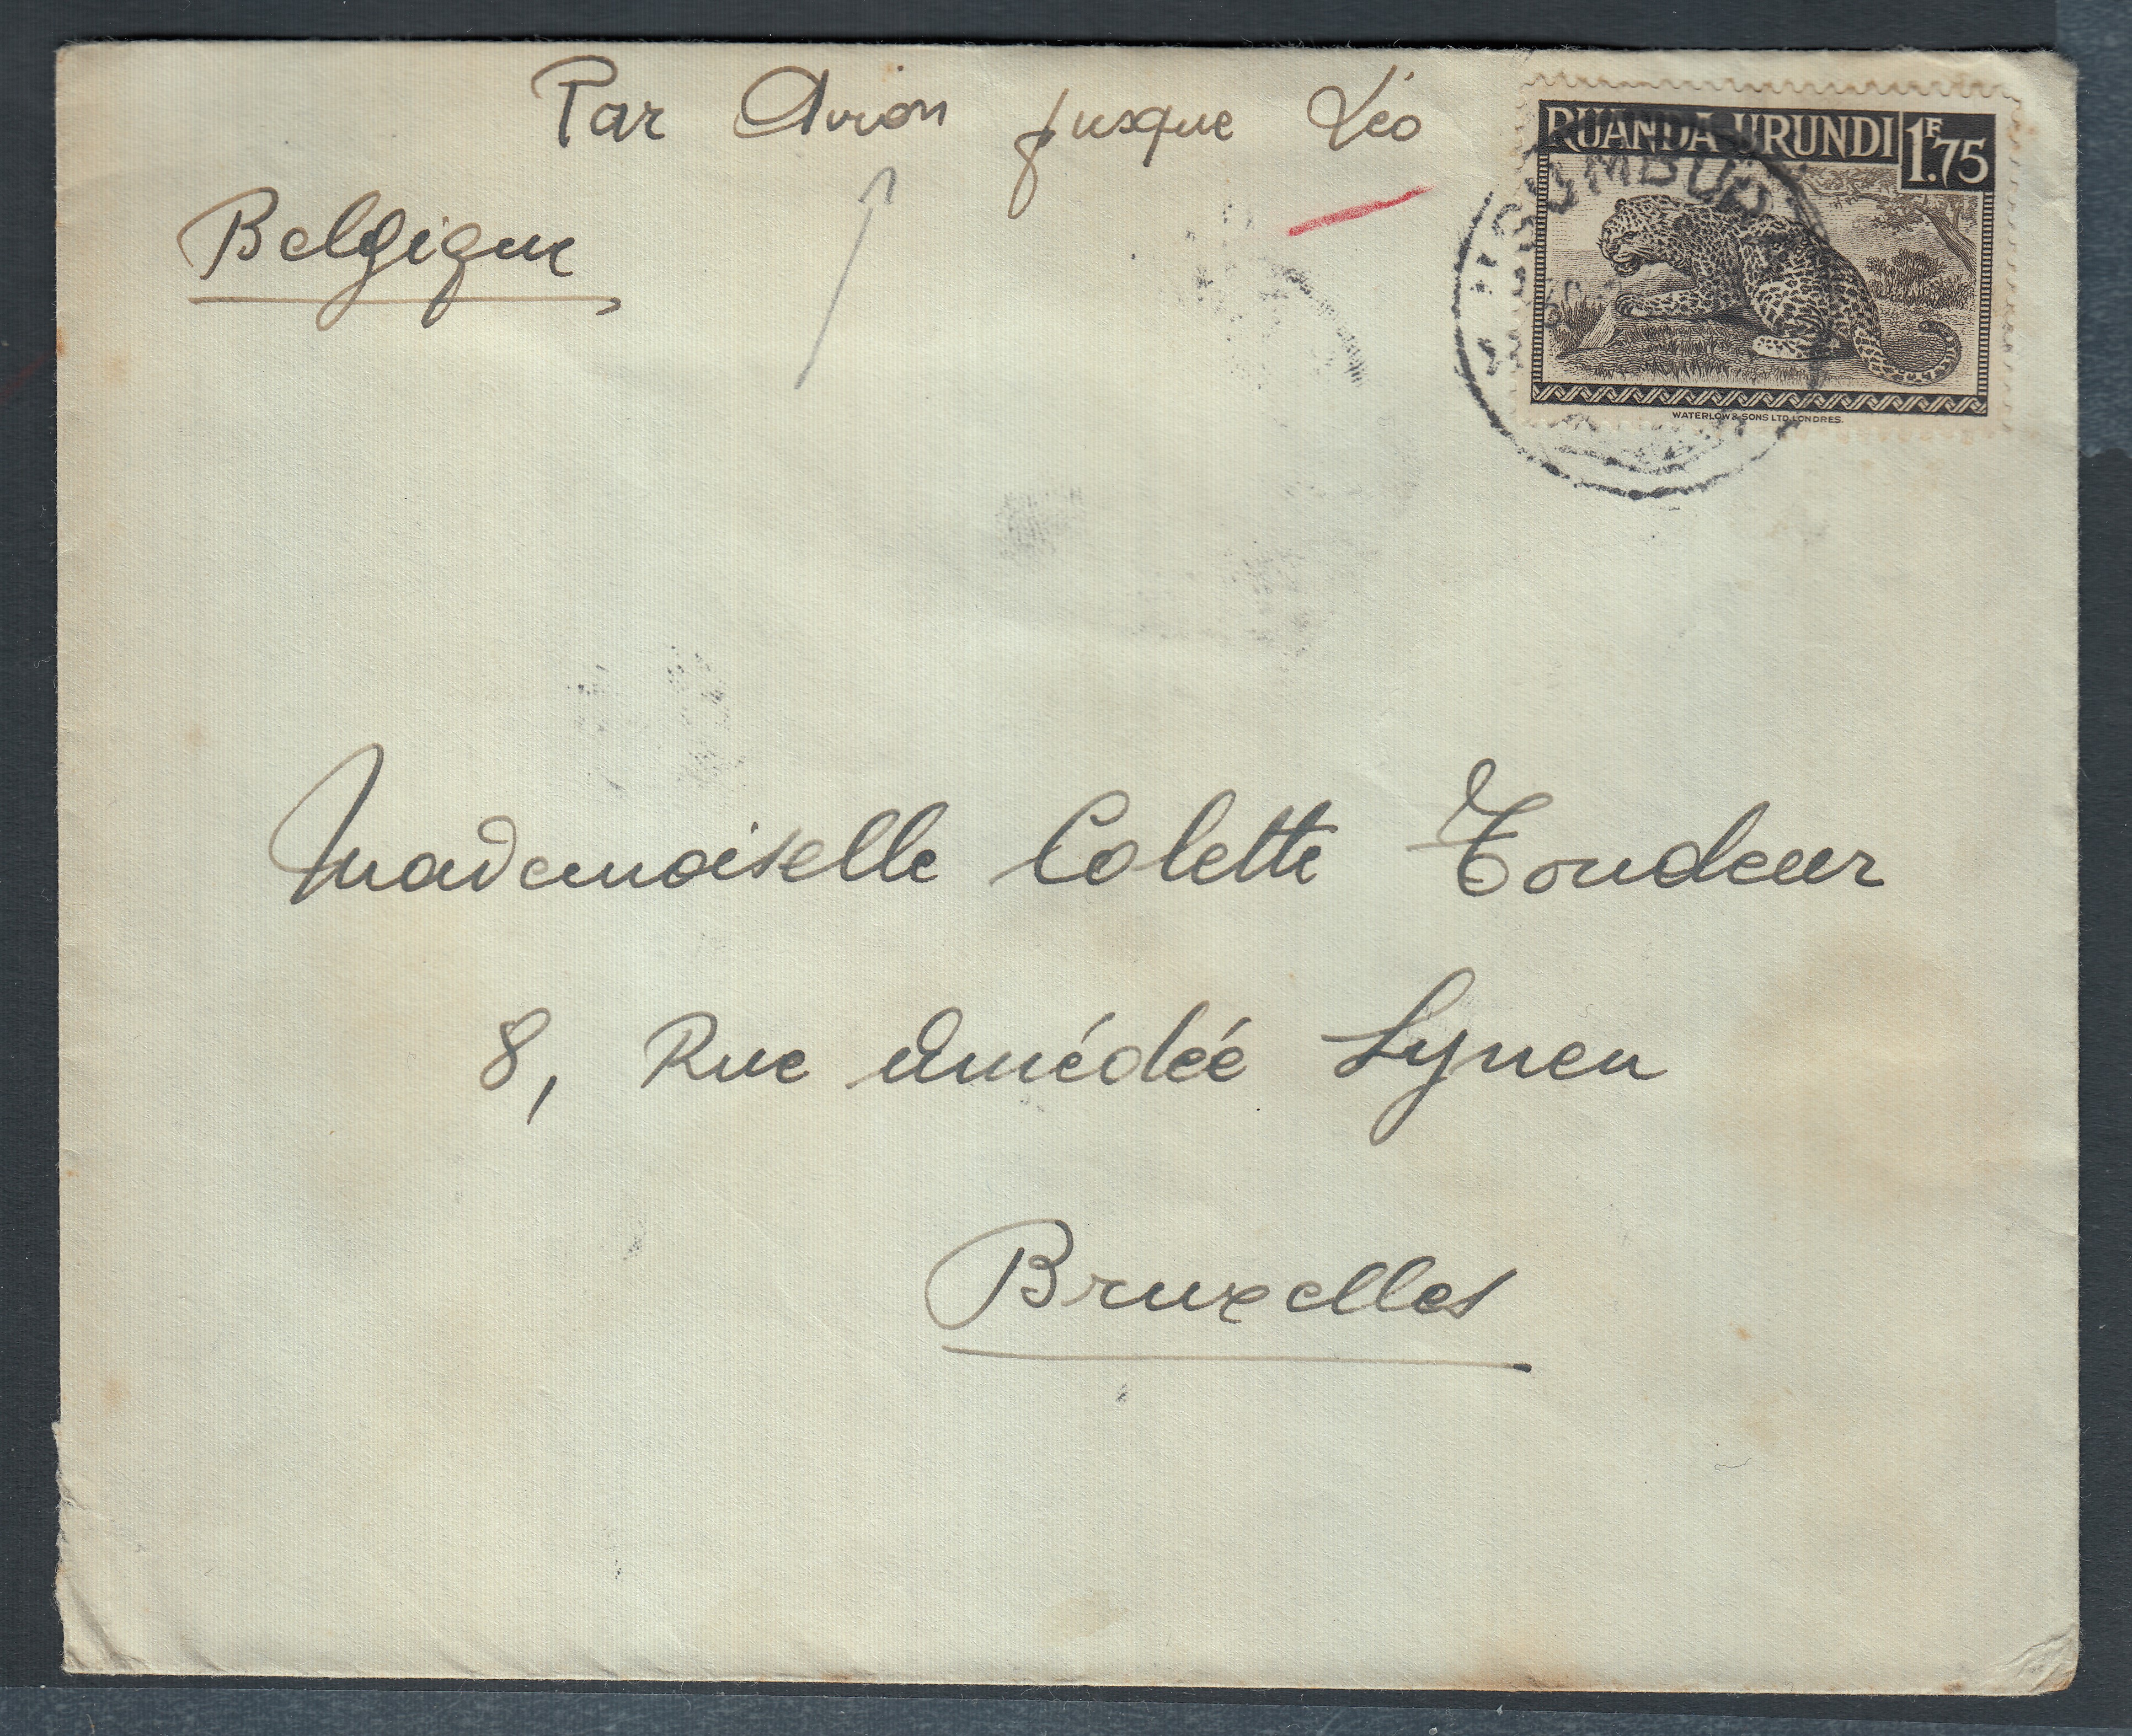 Par Avion jusque Léo
RUANDA-URUNDI 1F.75
USUMBURA
Belgique
WATERLOW & SONS LTD. LONDRES.
Mademoiselle Colette Tondeur
8, Rue Amédée Lynen
Bruxelles